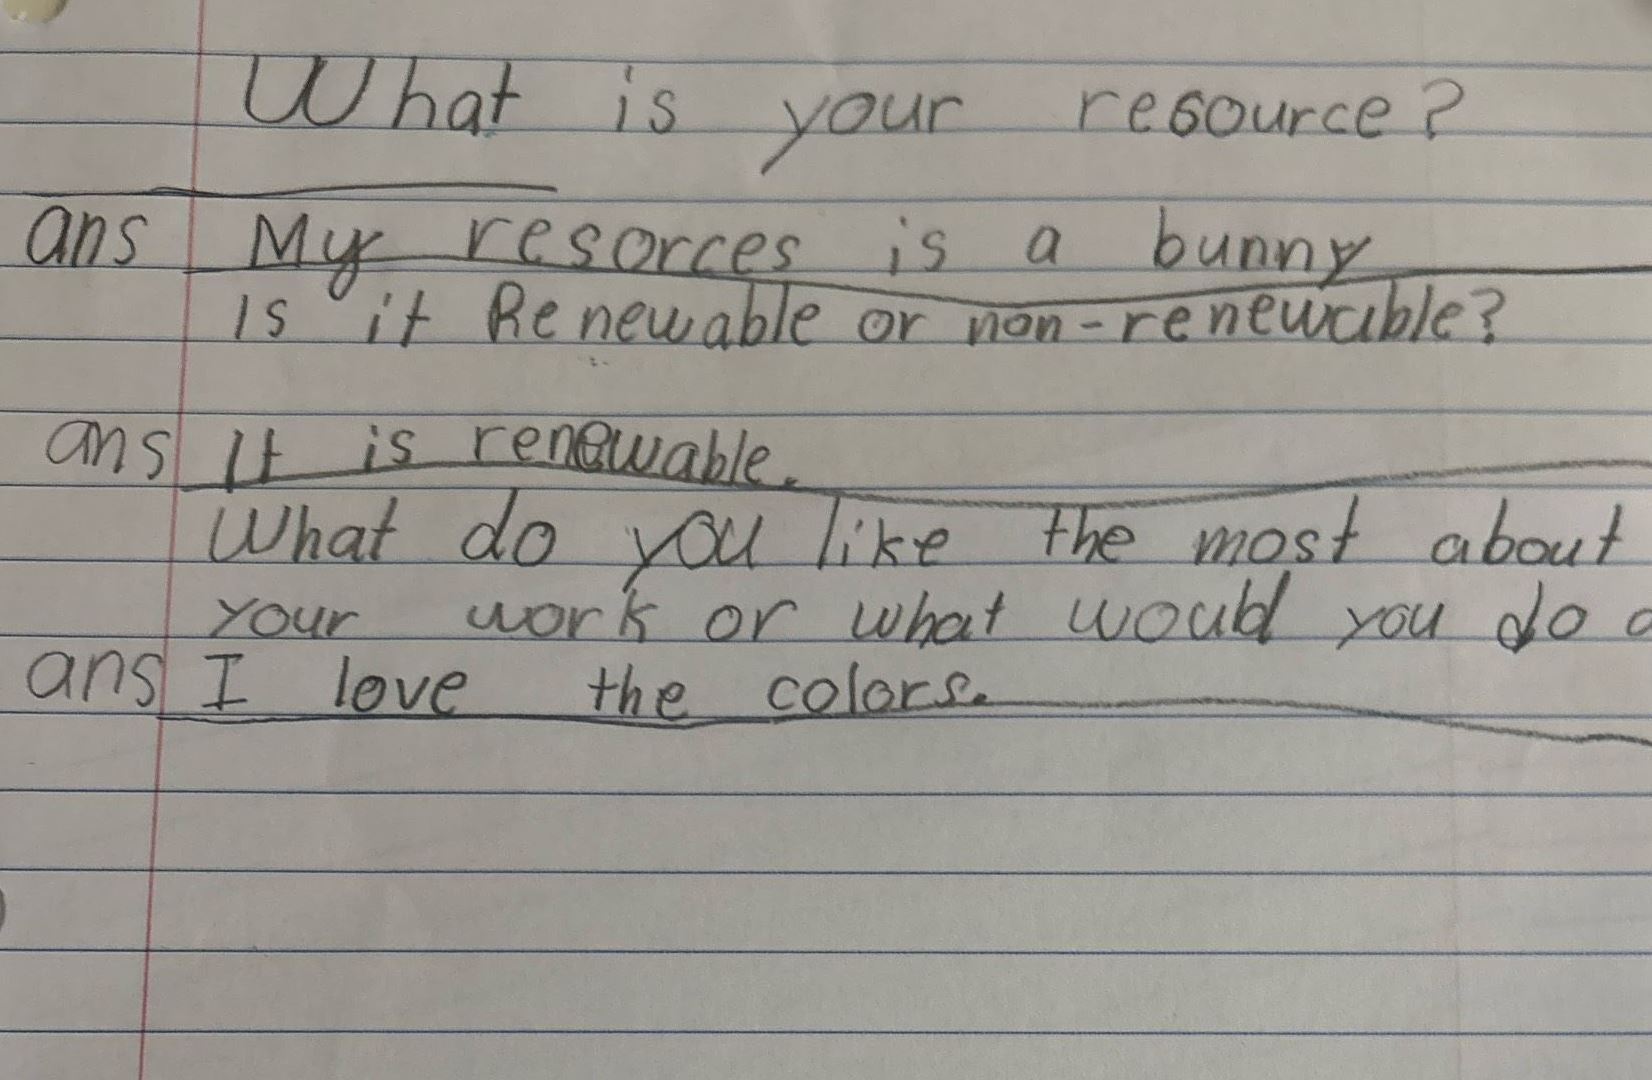 What is your resource?
ans My resorces is a bunny
Is it Renewable or non-renewable?
ans It is renewable.
What do you like the most about
your work or what would you do
ans I love the colors.